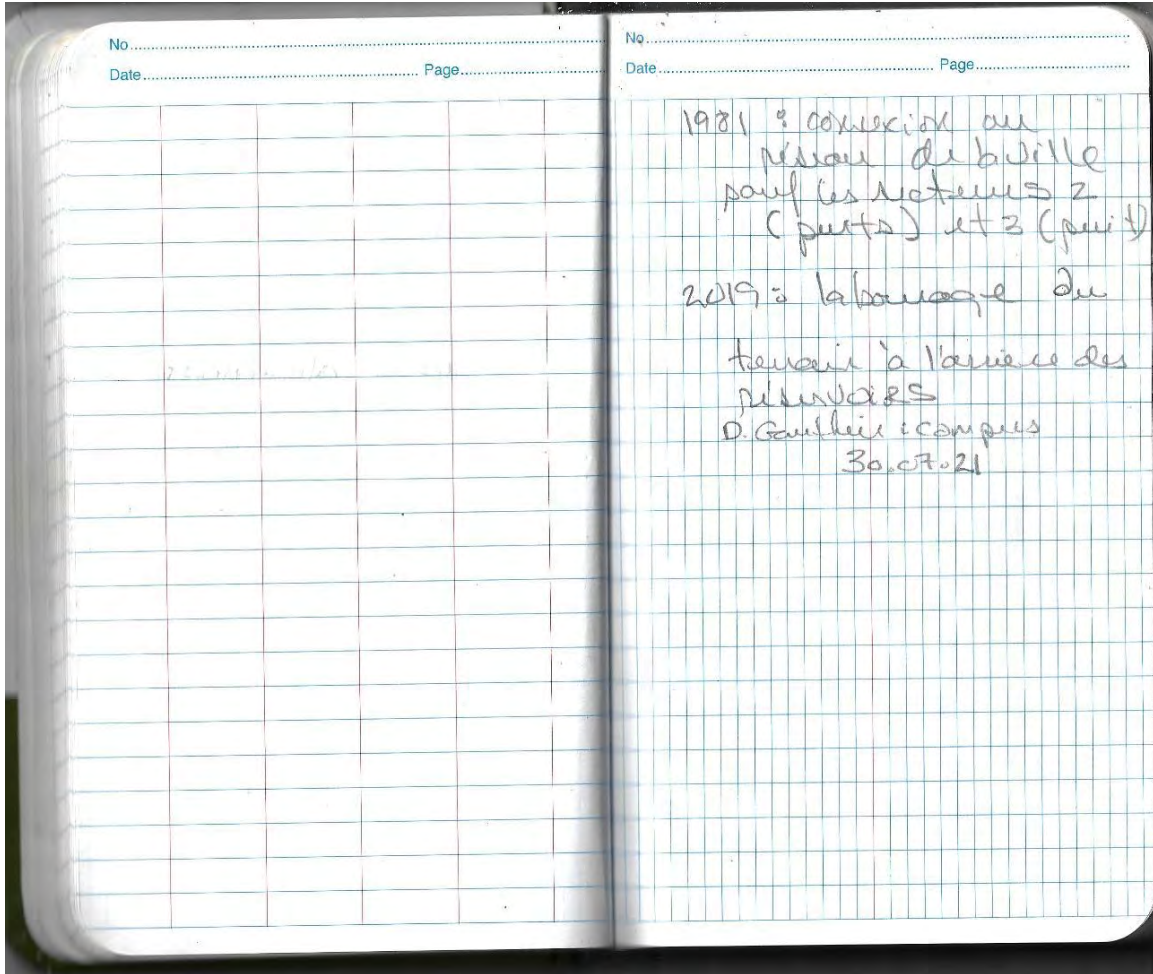 No
Date Page
No
Date Page
1981 : connexion au
réseau de la ville
sauf les secteurs 2
(puits) et 3 (puit)
2019 : labourage du
terrain à l'arrière des
réservoirs
D. Gauthier : campus
30.07.21